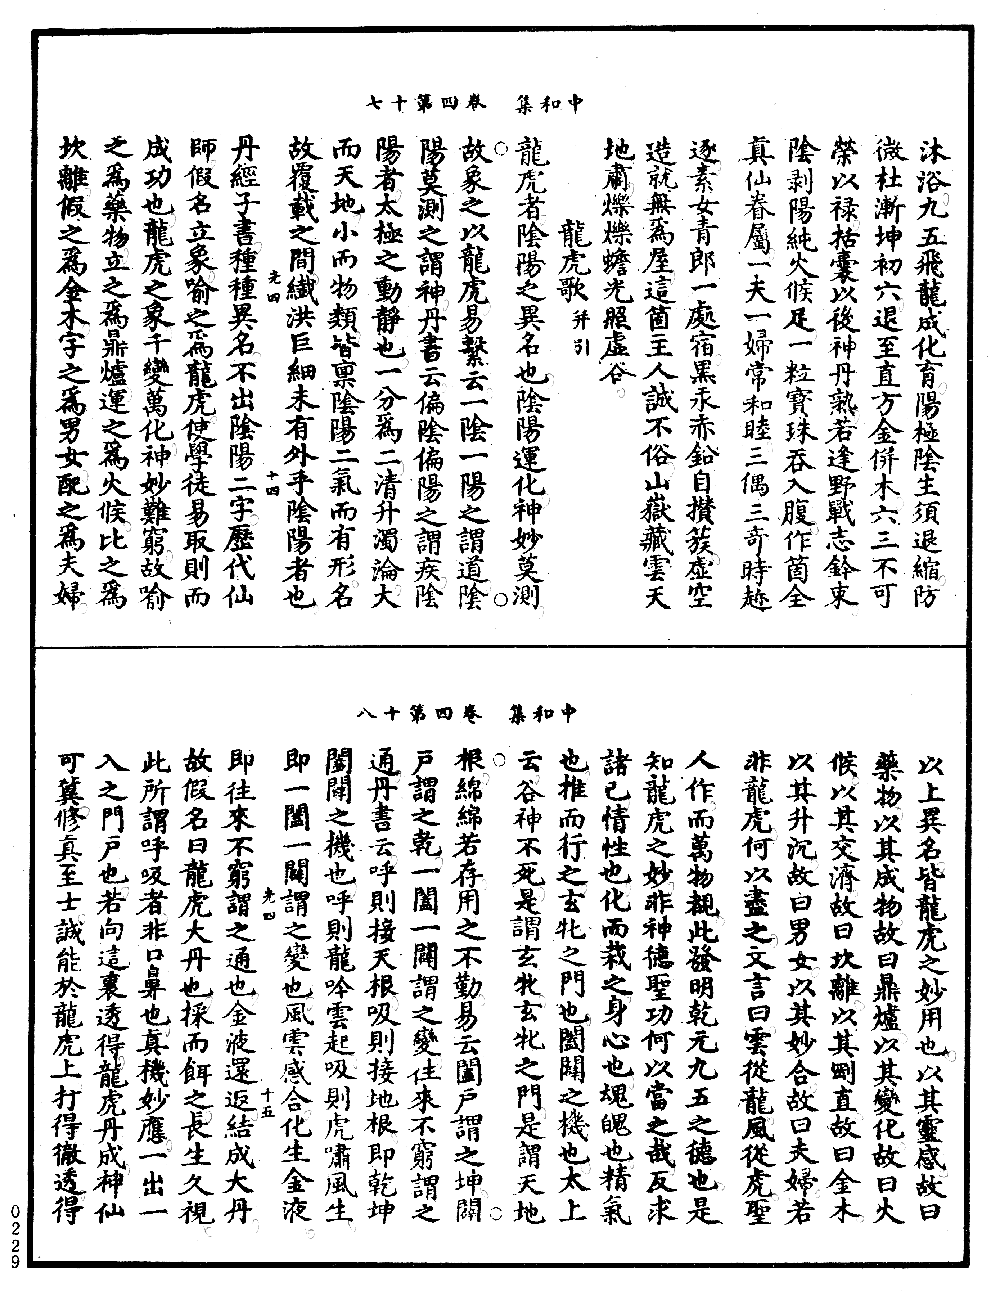 中和集　卷四第十七
沐浴九五飛龍成化育陽極陰生須退縮防
微杜漸坤初六退至直方金併木六三不可
榮以禄括囊以後神丹熟若逢野戰志鈐束
陰剥陽純火候足一粒寶珠吞入腹作箇全
真仙眷屬一夫一婦常和睦三偶三奇時趂
逐素女青郎一處宿黑汞赤鉛自攅簇虚空
造就無爲屋這箇主人誠不俗山嶽藏雲天
地肅爍爍蟾光照虚谷
龍虎歌 并引
龍虎者陰陽之異名也陰陽運化神妙莫測
故象之以龍虎易繫云一陰一陽之謂道陰
陽莫測之謂神丹書云偏陰偏陽之謂疾陰
陽者太極之動靜也一分爲二清升濁淪大
而天地小而物類皆稟陰陽二氣而有形名
故覆載之間纎洪巨細未有外乎陰陽者也
光四　十四
丹經子書種種異名不出陰陽二字歷代仙
師假名立象喻之爲龍虎使學徒易取則而
成功也龍虎之象千變萬化神妙難窮故喻
之爲藥物立之爲鼎爐運之爲火候比之爲
坎離假之爲金木字之爲男女配之爲夫婦
中和集　卷四第十八
以上異名皆龍虎之妙用也以其靈感故曰
藥物以其成物故曰鼎爐以其變化故曰火
候以其交濟故曰坎離以其剛直故曰金木
以其升沉故曰男女以其妙合故曰夫婦若
非龍虎何以盡之文言曰雲從龍風從虎聖
人作而萬物覩此發明乾元九五之德也是
知龍虎之妙非神德聖功何以當之哉反求
諸己情性也化而裁之身心也魂魄也精氣
也推而行之玄牝之門也闔闢之機也太上
云谷神不死是謂玄牝玄牝之門是謂天地
根綿綿若存用之不勤易云闔戶謂之坤闢
戶謂之乾一闔一闢謂之變往來不窮謂之
通丹書云呼則接天根吸則接地根即乾坤
闔闢之機也呼則龍吟雲起吸則虎嘯風生
即一闔一闢謂之變也風雲感合化生金液
光四　十五
即往來不窮謂之通也金液還返結成大丹
故假名曰龍虎大丹也採而餌之長生久視
此所謂呼吸者非口鼻也真機妙應一出一
入之門戶也若向這裏透得龍虎丹成神仙
可冀修真至士誠能於龍虎上打得徹透得
0229